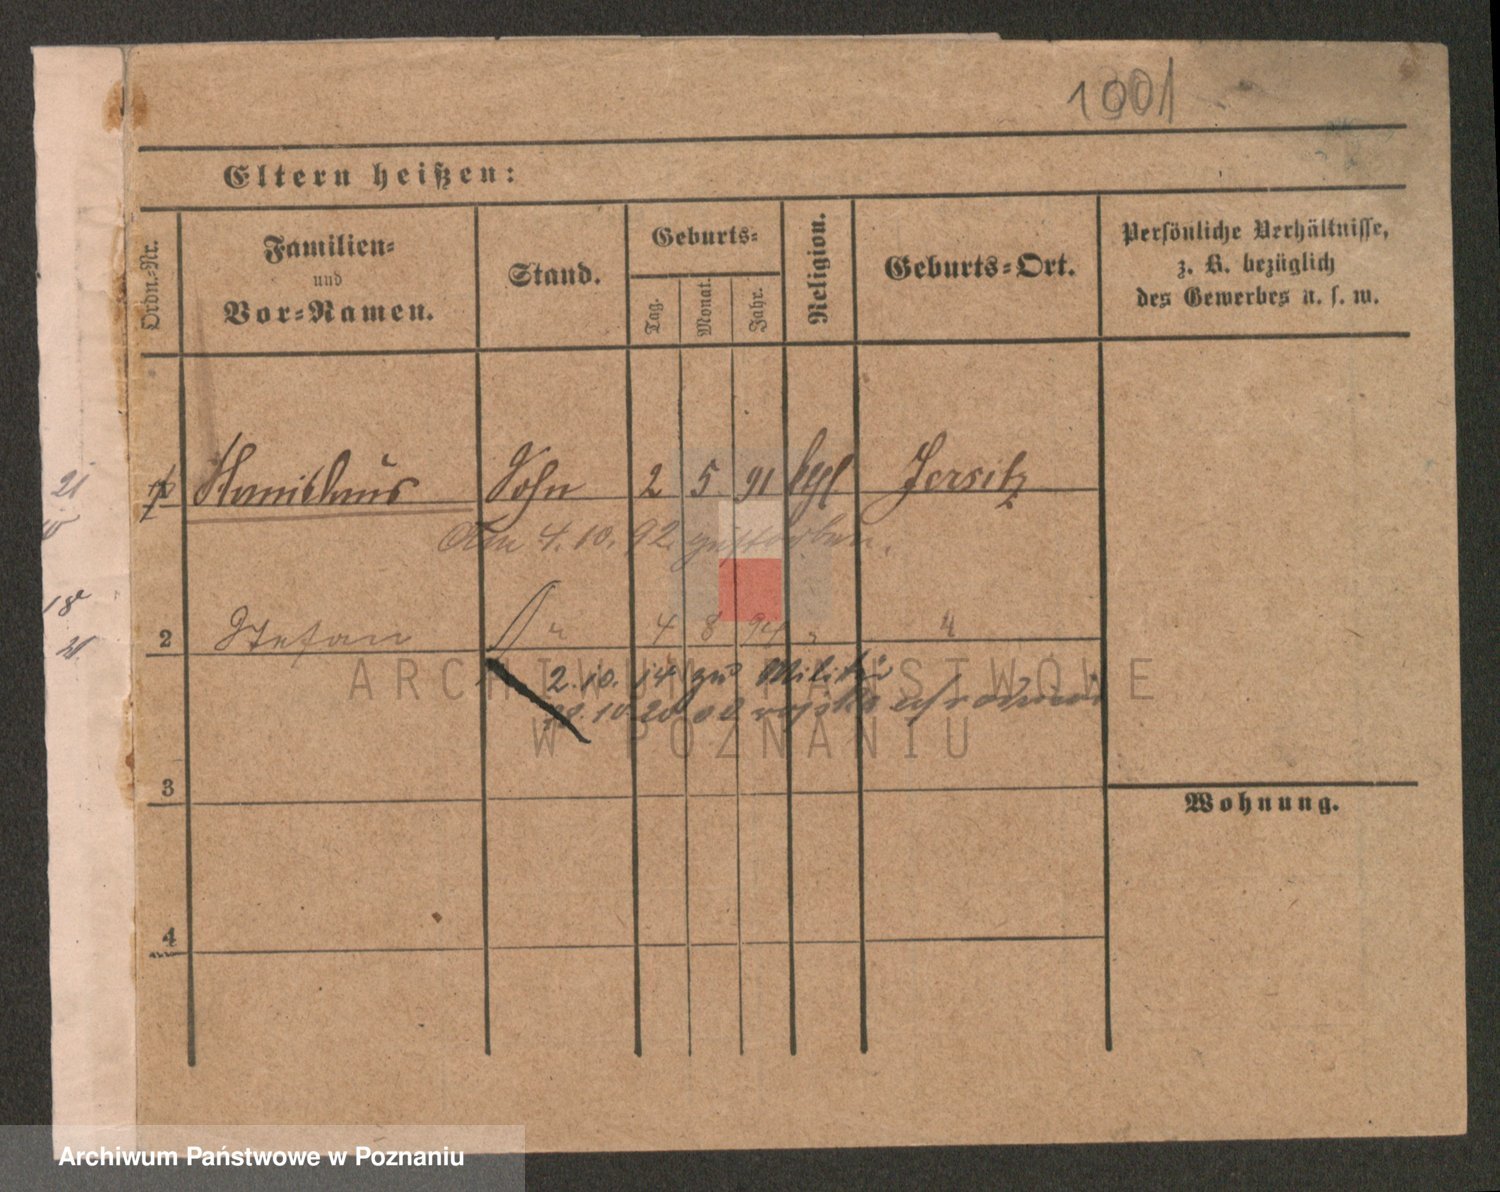 1901
Eltern heißen:
Ordn.-Nr.
Familien-
und
Vor-Namen.
Stand.
Geburts-
Tag.
Monat.
Jahr.
Religion.
Geburts-Ort.
Persönliche Verhältnisse,
z. B. bezüglich
des Gewerbes u. s. w.
21
1 Stanislaus Sohn 2 5 91 kath Jersitz
Am 4.10.92 gestorben.
18
2 Stefan S " 4 8 94 " "
21
2.10.14 zu Militär
20.10.20 od wojska
ARCHIWUM PAŃSTWOWE
W POZNANIU
3
Wohnung.
4
Archiwum Państwowe w Poznaniu